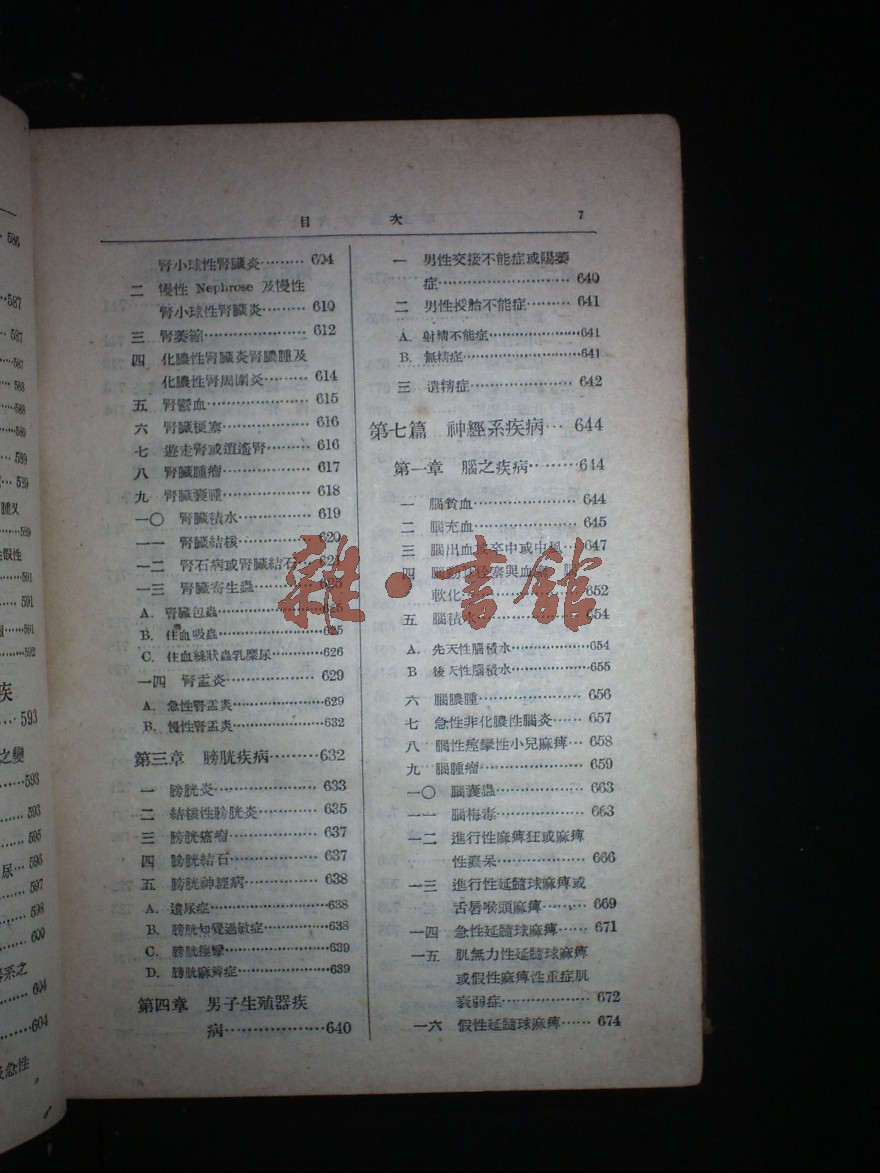 目 次 7
腎小球性腎臟炎……… 604
二 慢性 Nephrose 及慢性
腎小球性腎臟炎……… 610
三 腎萎縮……………… 612
四 化膿性腎臟炎腎膿腫及
化膿性腎周圍炎……… 614
五 腎鬱血……………… 615
六 腎臟梗塞…………… 616
七 遊走腎或逍遙腎…… 616
八 腎臟腫瘤…………… 617
九 腎臟囊腫…………… 618
一〇 腎臟積水………… 619
一一 腎臟結核………… 620
一二 腎石病或腎臟結石… 621
一三 腎臟寄生蟲……… 625
A. 腎臟包蟲…………… 625
B. 住血吸蟲…………… 625
C. 住血絲狀蟲乳糜尿… 626
一四 腎盂炎…………… 629
A. 急性腎盂炎………… 629
B. 慢性腎盂炎………… 632
第三章 膀胱疾病……… 632
一 膀胱炎……………… 633
二 結核性膀胱炎……… 635
三 膀胱癌瘤…………… 637
四 膀胱結石…………… 637
五 膀胱神經病………… 638
A. 遺尿症……………… 638
B. 膀胱知覺過敏症…… 638
C. 膀胱痙攣…………… 639
D. 膀胱麻痺症………… 639
第四章 男子生殖器疾
病……………… 640
一 男性交接不能症或陽萎
症…………………… 640
二 男性授胎不能症…… 641
A. 射精不能症………… 641
B. 無精症……………… 641
三 遺精症……………… 642
第七篇 神經系疾病… 644
第一章 腦之疾病……… 644
一 腦貧血……………… 644
二 腦充血……………… 645
三 腦出血 卒中或中風… 647
四 腦動 栓塞與血
軟化 652
五 腦積水……………… 654
A. 先天性腦積水……… 654
B 後天性腦積水……… 655
六 腦膿腫……………… 656
七 急性非化膿性腦炎… 657
八 腦性痙攣性小兒麻痺… 658
九 腦腫瘤……………… 659
一〇 腦囊蟲…………… 663
一一 腦梅毒…………… 663
一二 進行性麻痺狂或麻痺
性癡呆………… 666
一三 進行性延髓球麻痺或
舌唇喉頭麻痺…… 669
一四 急性延髓球麻痺… 671
一五 肌無力性延髓球麻痺
或假性麻痺性重症肌
衰弱症…………… 672
一六 假性延髓球麻痺… 674
雜·書館
586
587
587
588
588
589
589
591
591
591
592
疾
593
之變
593
593
595
尿… 596
597
598
600
604
604
急性